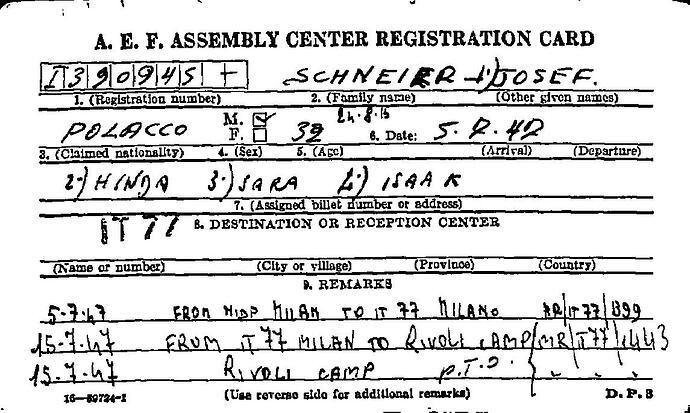 A. E. F. ASSEMBLY CENTER REGISTRATION CARD
I390945 + SCHNEIER 1) JOSEF.
1. (Registration number) 2. (Family name) (Other given names)
POLACCO M. ☑ 32 24.8.15
F. ☐ 6. Date: 5.7.47
3. (Claimed nationality) 4. (Sex) 5. (Age) (Arrival) (Departure)
2) HINDA 3) SARA 4) ISAAK
7. (Assigned billet number or address)
IT 77 8. DESTINATION OR RECEPTION CENTER
(Name or number) (City or village) (Province) (Country)
9. REMARKS
5-7.47 FROM MILAN TO IT 77 MILANO IT77 1399
15-7.47 FROM IT 77 MILAN TO RIVOLI CAMP MR IT77 1443
15-7.47 RIVOLI CAMP P.T.O.
16—39724-1 (Use reverse side for additional remarks) D. P. 3